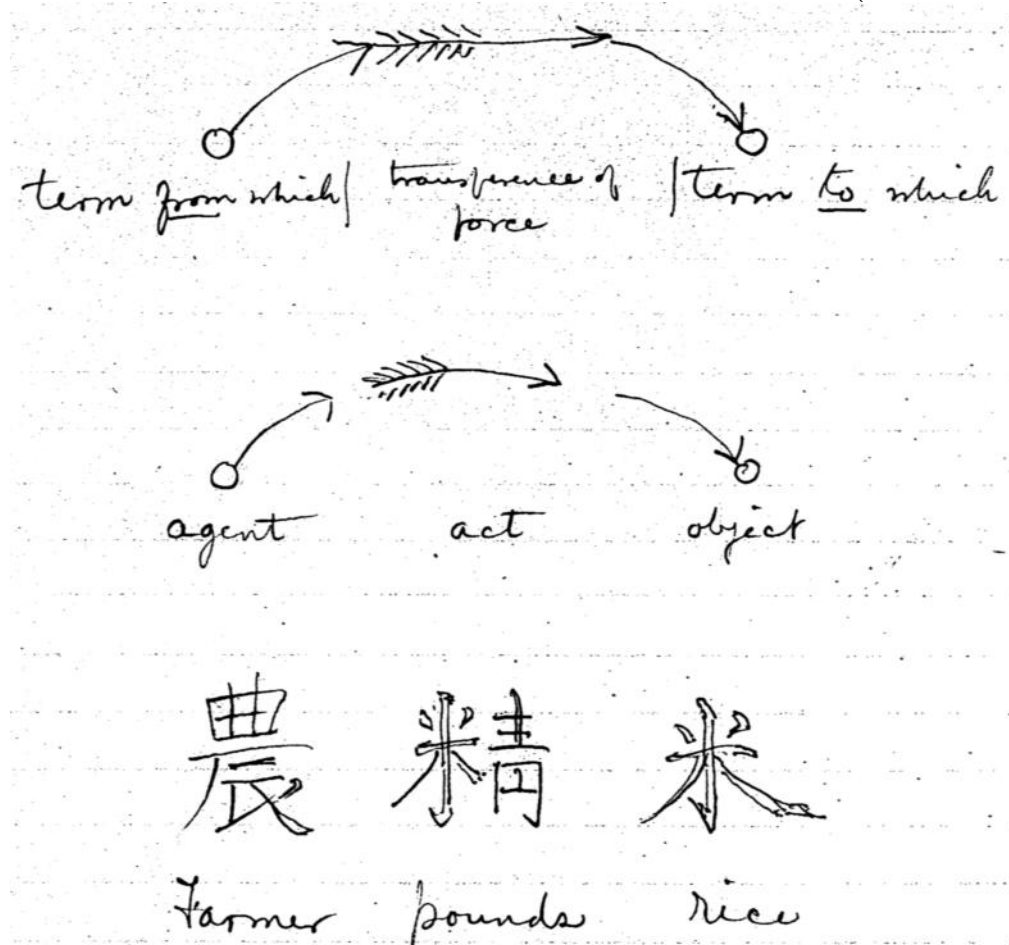 term from which | transference of | term to which
force
agent act object
農 精 米
Farmer pounds rice